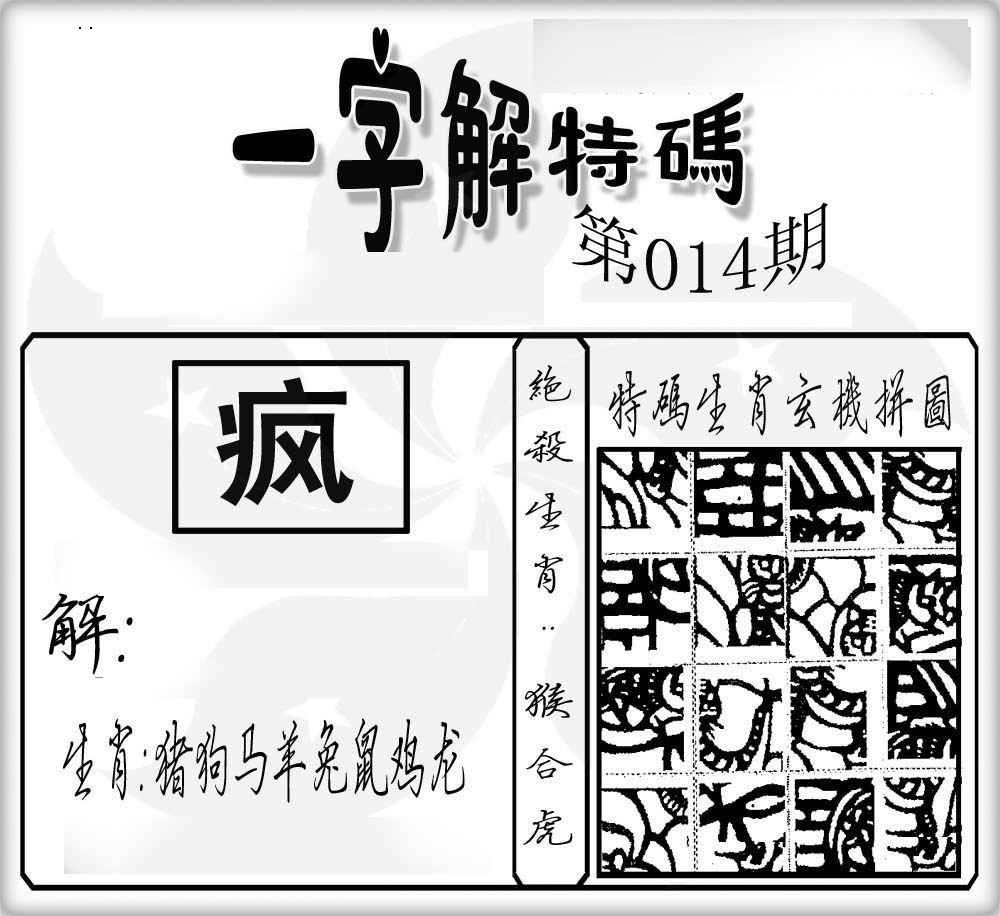 一字解特碼
第014期
疯
解:
生肖:猪狗马羊兔鼠鸡龙
絶殺生肖:猴合虎
特碼生肖玄機拼圖